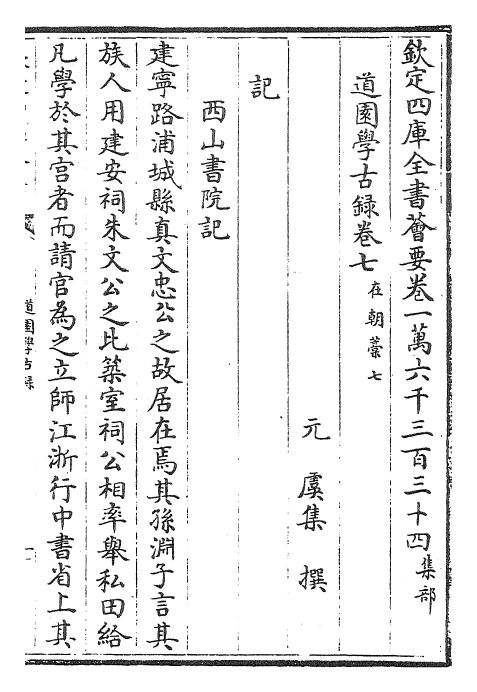 欽定四庫全書薈要卷一萬六千三百三十四集部
道園學古録卷七在朝藁七
元 虞集 撰
記
西山書院記
建寧路浦城縣真文忠公之故居在焉其孫淵子言其
族人用建安祠朱文公之比築室祠公相率舉私田給
凡學於其宫者而請官為之立師江浙行中書省上其
道園學古録
一